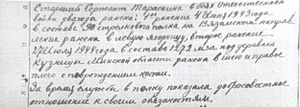 Старший Сержант Тараскина в боях Отечественной
войны дважды ранена: 1ое ранение 9 июня 1943 года
в составе 90 стрелкового полка на Вяземском направ
ление ранена в левую ягодицу, второе ранение
27 июля 1944 года в составе 1272 с.п. под деревней
Кузнецы Минской области ранена в шею и правое
плечо с повреждением кости.
За время службы в полку показала добросовестное
отношение к своим обязанностям.